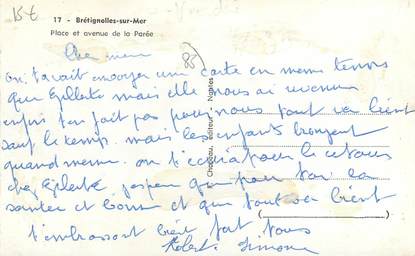 15€
17 - Brétignolles-sur-Mer
Place et avenue de la Parée
85
Cher meme
on tavait envoyer une carte en meme temps
que Gilberte mais elle nous ai revenu
enfin t'en fait pas pour nous tout va bient
sauf le temps. mais les enfants bronzent
quand meme. on t'ecrira pour le retour
chez Gilberte. jespere que pour toi la
santee et bonne et que tout va bient
t'embrassont bient fort tous
Robert Simone
Chapeau, Editeur - Nantes